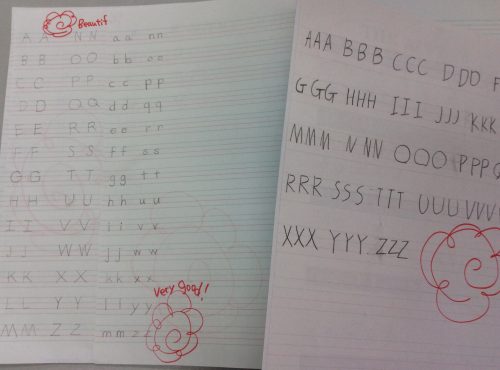 Beautif
A A N N a a n n
B B O O b b o o
C C P P c c p p
D D Q Q d d q q
E E R R e e r r
F F S S f f s s
G G T T g g t t
H H U U h h u u
I I V V i i v v
J J W W j j w w
K K X X k k x x
L L Y Y l l y y
M M Z Z m m z z
Very good!
AAA BBB CCC DDD
GGG HHH III JJJ KKK
MMM NNN OOO PPP Q
RRR SSS TTT UUU VVV
XXX YYY ZZZ